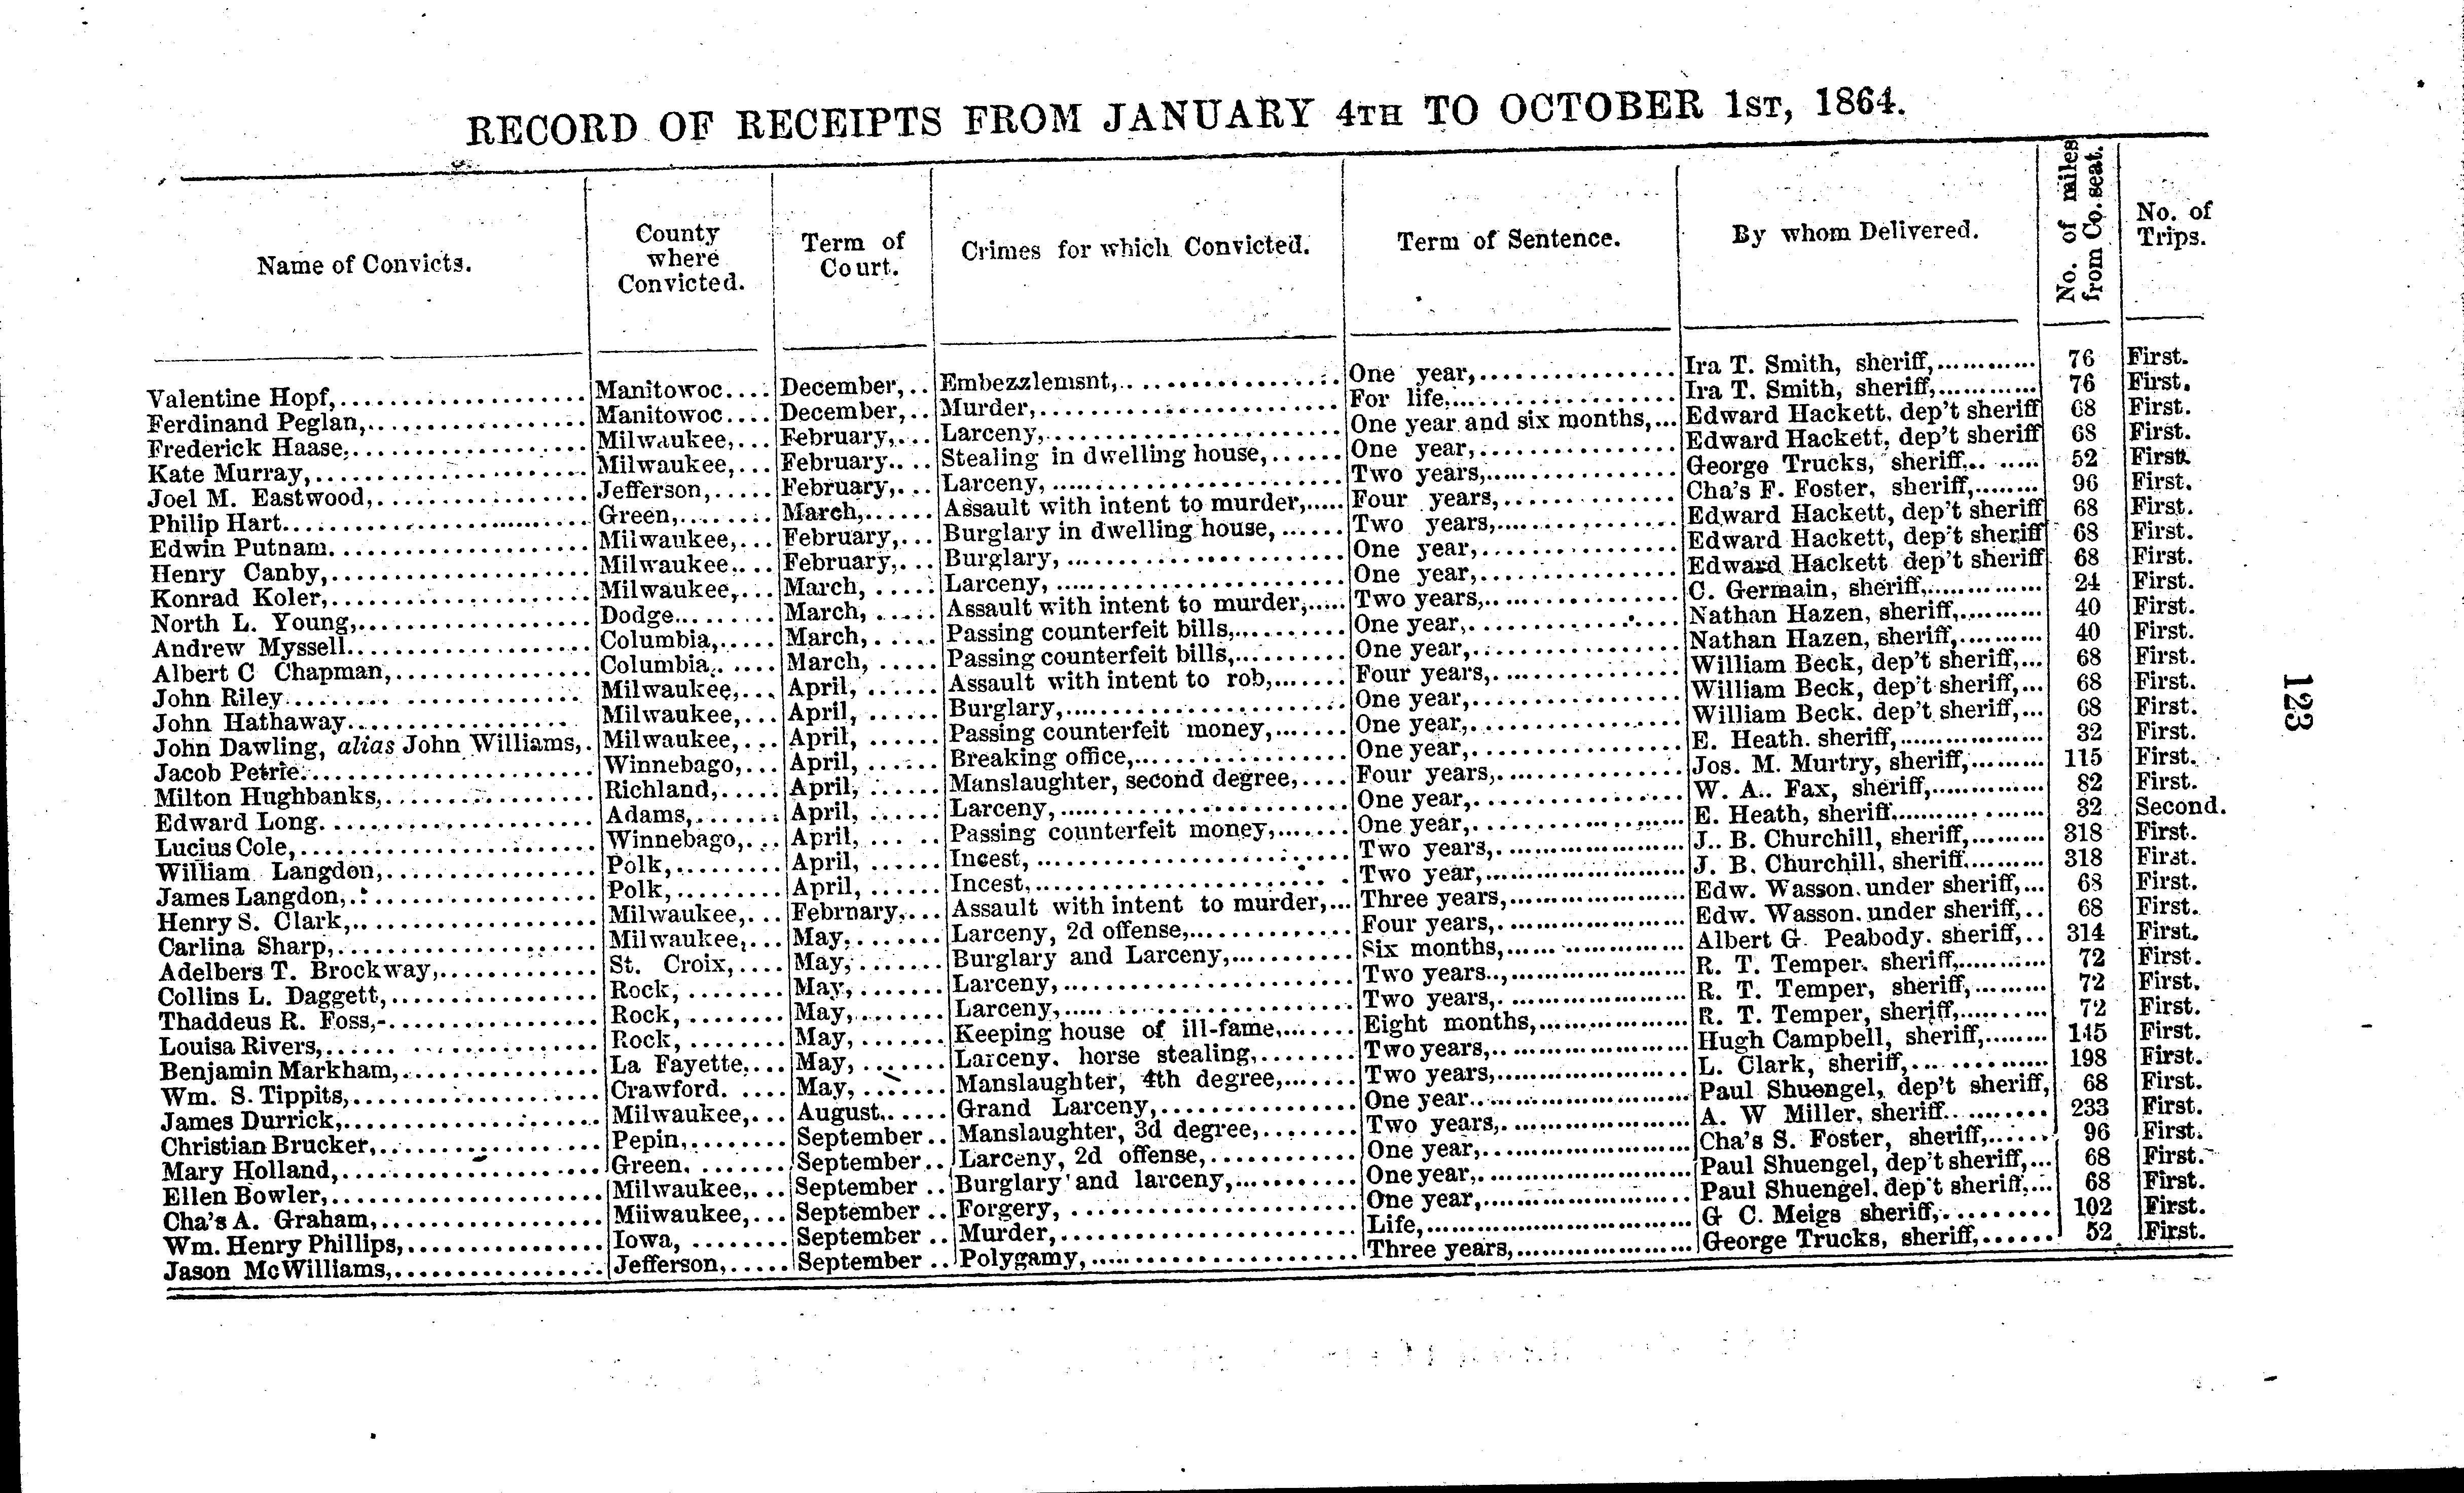 RECORD OF RECEIPTS FROM JANUARY 4TH TO OCTOBER 1ST, 1864.
Name of Convicts. | County where Convicted. | Term of Court. | Crimes for which Convicted. | Term of Sentence. | By whom Delivered. | No. of miles from Co. seat. | No. of Trips.
Valentine Hopf, | Manitowoc | December, | Embezzlemsnt, | One year, | Ira T. Smith, sheriff, | 76 | First.
Ferdinand Peglan, | Manitowoc | December, | Murder, | For life, | Ira T. Smith, sheriff, | 76 | First.
Frederick Haase, | Milwaukee, | February, | Larceny, | One year and six months, | Edward Hackett, dep't sheriff | 68 | First.
Kate Murray, | Milwaukee, | February. | Stealing in dwelling house, | One year, | Edward Hackett, dep't sheriff | 68 | First.
Joel M. Eastwood, | Jefferson, | February, | Larceny, | Two years, | George Trucks, sheriff | 52 | First.
Philip Hart | Green, | March, | Assault with intent to murder, | Four years, | Cha's F. Foster, sheriff, | 96 | First.
Edwin Putnam | Milwaukee, | February, | Burglary in dwelling house, | Two years, | Edward Hackett, dep't sheriff | 68 | First.
Henry Canby, | Milwaukee. | February, | Burglary, | One year, | Edward Hackett, dep't sheriff | 68 | First.
Konrad Koler, | Milwaukee, | March, | Larceny, | One year, | Edward Hackett dep't sheriff | 68 | First.
North L. Young, | Dodge | March, | Assault with intent to murder, | Two years, | C. Germain, sheriff, | 24 | First.
Andrew Myssell | Columbia, | March, | Passing counterfeit bills, | One year, | Nathan Hazen, sheriff, | 40 | First.
Albert C Chapman, | Columbia, | March, | Passing counterfeit bills, | One year, | Nathan Hazen, sheriff, | 40 | First.
John Riley | Milwaukee, | April, | Assault with intent to rob, | Four years, | William Beck, dep't sheriff, | 68 | First.
John Hathaway | Milwaukee, | April, | Burglary, | One year, | William Beck, dep't sheriff, | 68 | First.
John Dawling, alias John Williams, | Milwaukee, | April, | Passing counterfeit money, | One year, | William Beck. dep't sheriff, | 68 | First.
Jacob Petrie | Winnebago, | April, | Breaking office, | One year, | E. Heath. sheriff, | 32 | First.
Milton Hughbanks, | Richland, | April, | Manslaughter, second degree, | Four years, | Jos. M. Murtry, sheriff, | 115 | First.
Edward Long | Adams, | April, | Larceny, | One year, | W. A.. Fax, sheriff, | 82 | First.
Lucius Cole, | Winnebago, | April, | Passing counterfeit money, | One year, | E. Heath, sheriff | 32 | Second.
William Langdon, | Polk, | April, | Incest, | Two years, | J.. B. Churchill, sheriff, | 318 | First.
James Langdon, | Polk, | April, | Incest, | Two year, | J. B. Churchill, sheriff | 318 | First.
Henry S. Clark, | Milwaukee, | Febrnary, | Assault with intent to murder, | Three years, | Edw. Wasson. under sheriff, | 68 | First.
Carlina Sharp, | Milwaukee, | May, | Larceny, 2d offense, | Four years, | Edw. Wasson. under sheriff, | 68 | First.
Adelbers T. Brockway, | St. Croix, | May, | Burglary and Larceny, | Six months, | Albert G. Peabody. sheriff, | 314 | First.
Collins L. Daggett, | Rock, | May, | Larceny, | Two years, | R. T. Temper. sheriff, | 72 | First.
Thaddeus R. Foss, | Rock, | May, | Larceny, | Two years, | R. T. Temper, sheriff, | 72 | First.
Louisa Rivers, | Rock, | May, | Keeping house of ill-fame, | Eight months, | R. T. Temper, sheriff, | 72 | First.
Benjamin Markham, | La Fayette, | May, | Larceny. horse stealing, | Two years, | Hugh Campbell, sheriff, | 145 | First.
Wm. S. Tippits, | Crawford. | May, | Manslaughter, 4th degree, | Two years, | L. Clark, sheriff, | 198 | First.
James Durrick, | Milwaukee, | August | Grand Larceny, | One year | Paul Shuengel, dep't sheriff, | 68 | First.
Christian Brucker, | Pepin, | September | Manslaughter, 3d degree, | Two years, | A. W Miller, sheriff | 233 | First.
Mary Holland, | Green, | September | Larceny, 2d offense, | One year, | Cha's S. Foster, sheriff, | 96 | First.
Ellen Bowler, | Milwaukee, | September | Burglary and larceny, | One year, | Paul Shuengel, dep't sheriff, | 68 | First.
Cha's A. Graham, | Miiwaukee, | September | Forgery, | One year, | Paul Shuengel. dep't sheriff, | 68 | First.
Wm. Henry Phillips, | Iowa, | September | Murder, | Life, | G C. Meigs sheriff, | 102 | First.
Jason McWilliams, | Jefferson, | September | Polygamy, | Three years, | George Trucks, sheriff, | 52 | First.
123